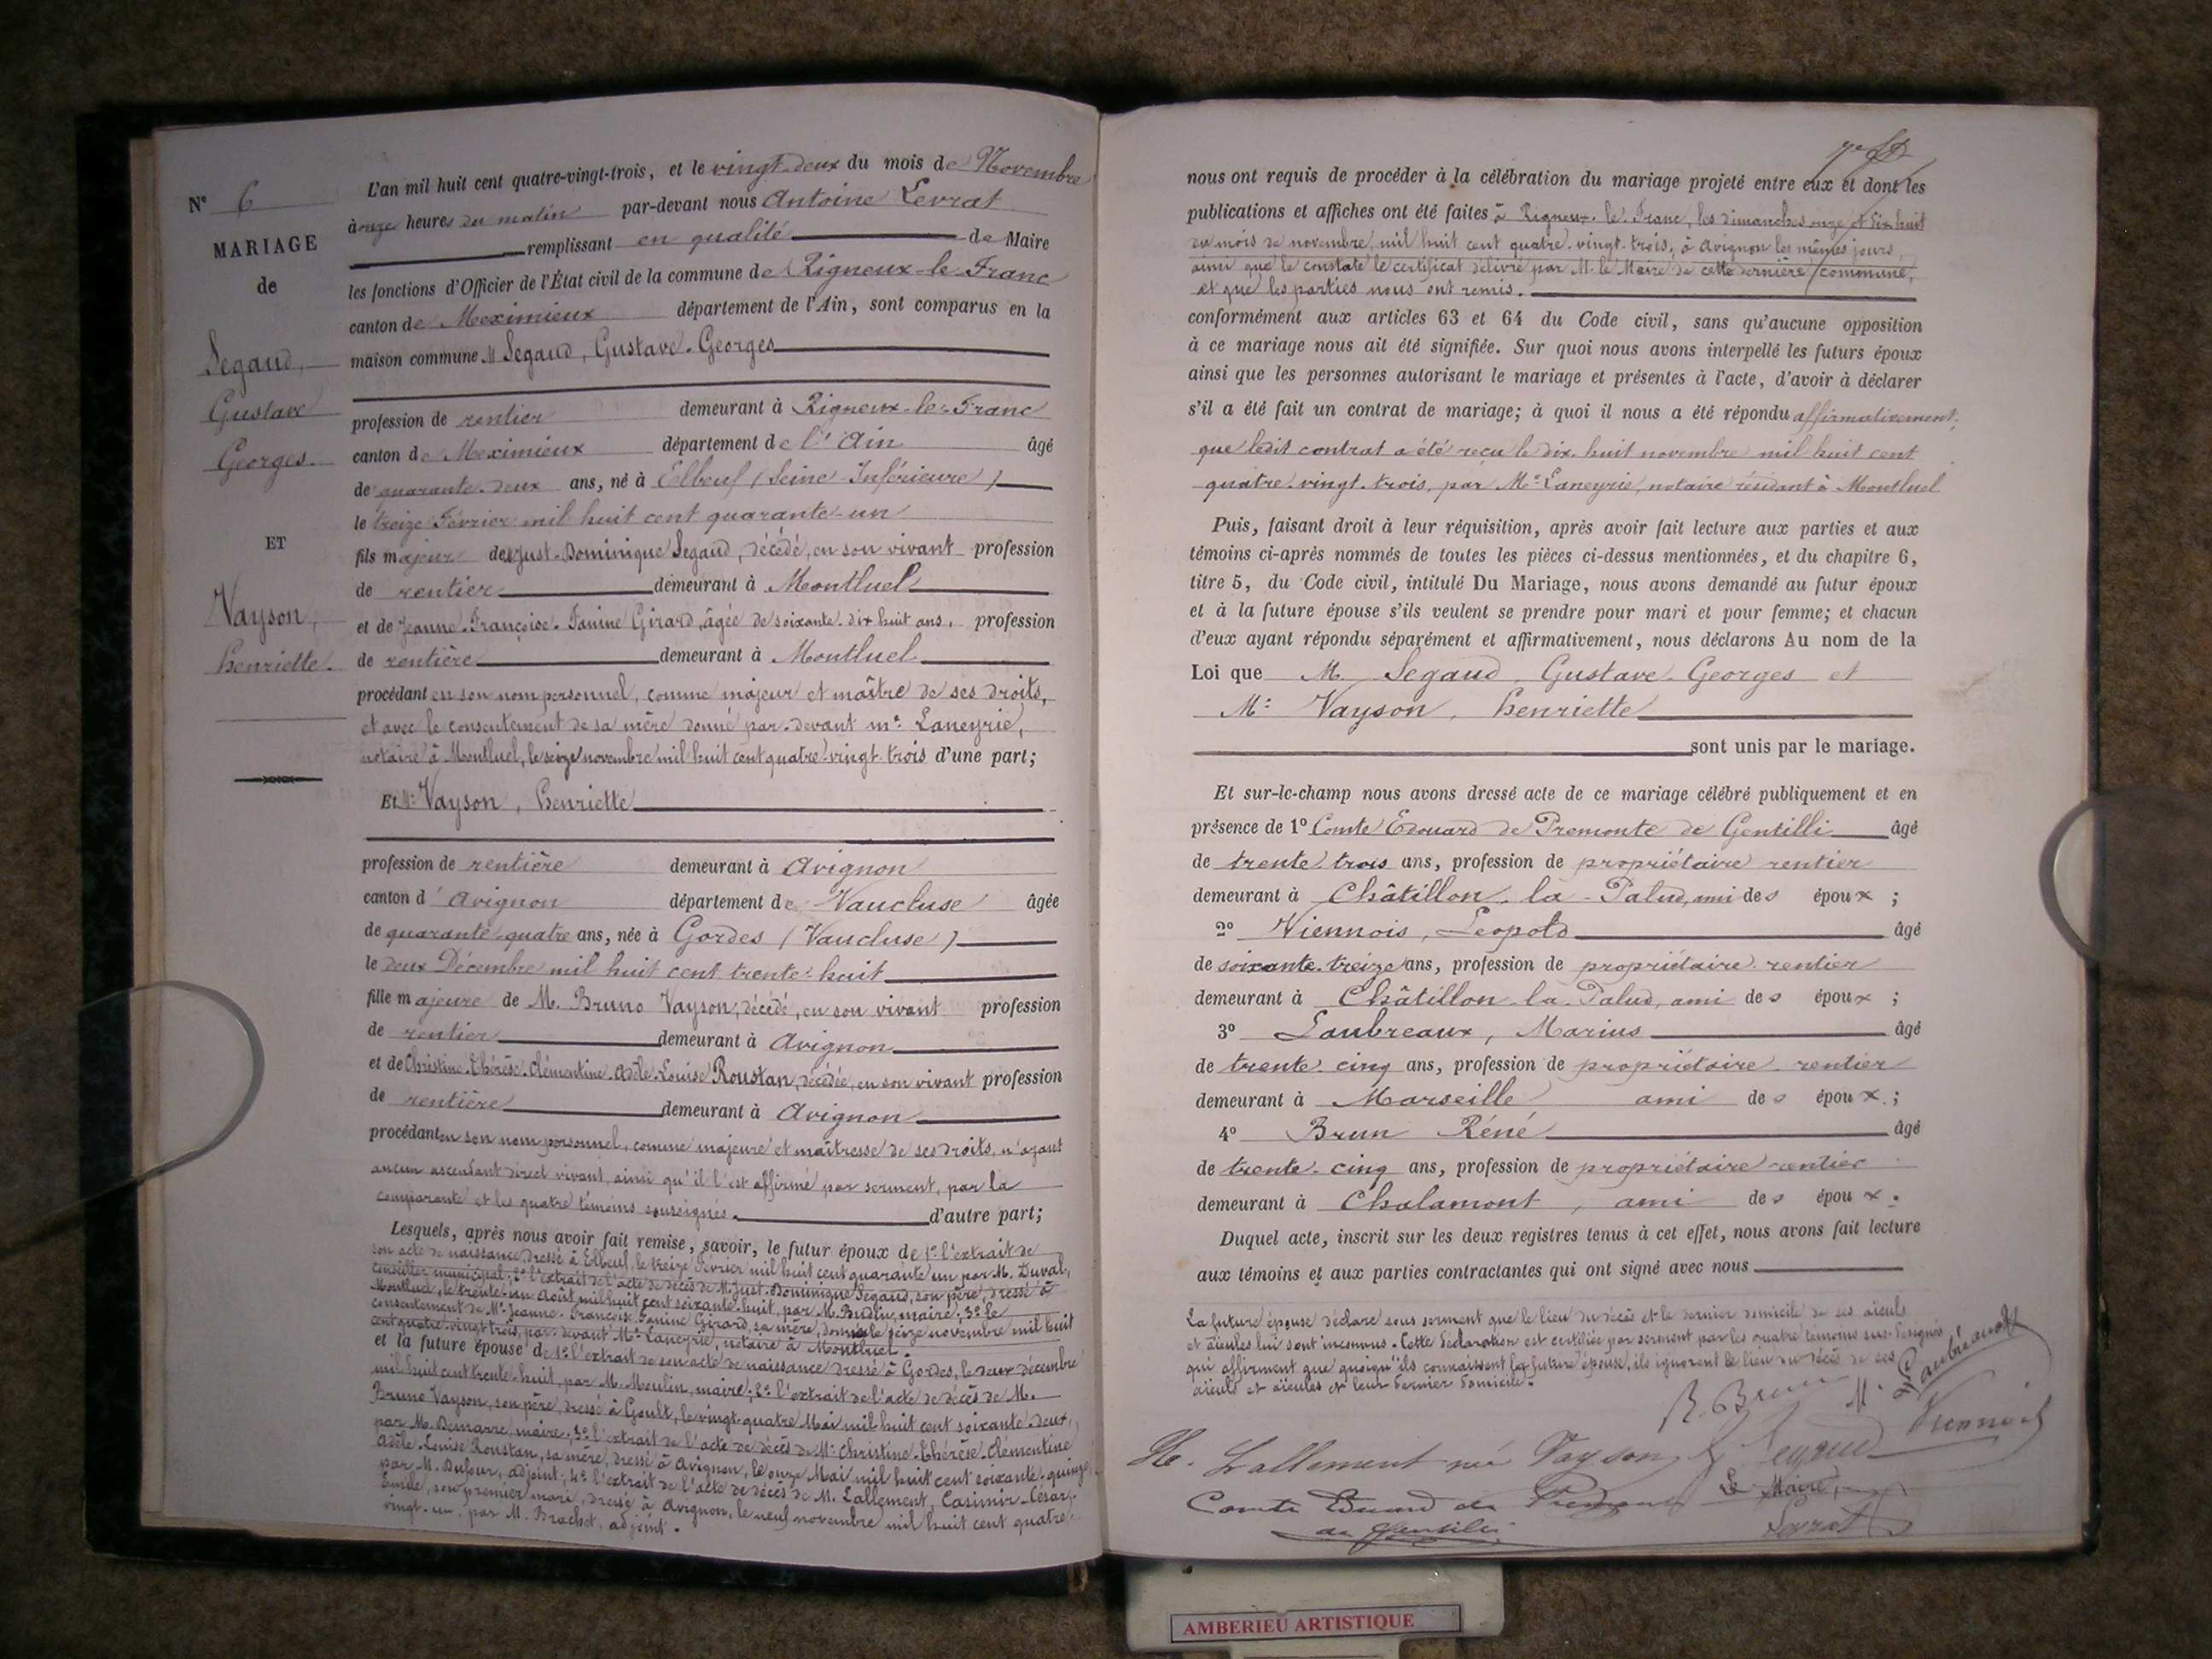 N° 6
MARIAGE
de
Segaud,
Gustave
Georges.
ET
Vayson,
henriette.
L'an mil huit cent quatre-vingt-trois, et le vingt-deux du mois de Novembre
à onze heures du matin par-devant nous Antoine Levrat
remplissant en qualité de Maire
les fonctions d'Officier de l'État civil de la commune de Rigneux-le-Franc
canton de Meximieux département de l'Ain, sont comparus en la
maison commune M Segaud, Gustave-Georges
profession de rentier demeurant à Rigneux-le-Franc
canton de Meximieux département de l'Ain âgé
de quarante-deux ans, né à Elbeuf (Seine-Inférieure)
le treize Février mil huit cent quarante-un
fils majeur de Just-Dominique Segaud, décédé, en son vivant profession
de rentier demeurant à Montluel
et de Jeanne-Françoise-Janine Girard, âgée de soixante-dix-huit ans, profession
de rentière demeurant à Montluel
procédant en son nom personnel, comme majeur et maître de ses droits,
et avec le consentement de sa mère donné par-devant Me Laneyrie,
notaire à Montluel, le seize novembre mil huit cent quatre-vingt-trois d'une part;
Et Me Vayson, henriette
profession de rentière demeurant à Avignon
canton d'Avignon département de Vaucluse âgée
de quarante-quatre ans, née à Gordes (Vaucluse)
le deux Décembre mil huit cent trente-huit
fille majeure de M. Bruno Vayson, décédé, en son vivant profession
de rentier demeurant à Avignon
et de Christine-Thérèse-Clémentine-Adèle-Louise Roustan, décédée, en son vivant profession
de rentière demeurant à Avignon
procédant en son nom personnel, comme majeure et maîtresse de ses droits, n'ayant
aucun ascendant direct vivant, ainsi qu'il l'est affirmé par serment, par la
comparante et les quatre témoins soussignés. d'autre part;
Lesquels, après nous avoir fait remise, savoir, le futur époux de 1° l'extrait de
son acte de naissance dressé à Elbeuf, le treize Février mil huit cent quarante un par M. Duval,
conseiller municipal; 2° l'extrait de l'acte de décès de M. Just-Dominique Segaud, son père, dressé à
Montluel, le trente-un Août mil huit cent soixante-huit, par M. Budin, maire; 3° le
consentement de Me Jeanne-Françoise-Janine Girard, sa mère, donné le seize novembre mil huit
cent quatre-vingt trois, par-devant Me Laneyrie, notaire à Montluel.
et la future épouse de 1° l'extrait de son acte de naissance dressé à Gordes, le deux décembre
mil huit cent trente-huit, par M. Moulin, maire; 2° l'extrait de l'acte de décès de M.
Bruno Vayson, son père, dressé à Goult, le vingt-quatre Mai mil huit cent soixante-deux,
par M. Demarre, maire; 3° l'extrait de l'acte de décès de Me Christine-Thérèse-Clémentine
Adèle-Louise Roustan, sa mère, dressé à Avignon, le onze Mai mil huit cent soixante-quinze
par M. Dufour, adjoint; 4° l'extrait de l'acte de décès de M. Lallement, Casimir-César,
Emile, son premier mari, dressé à Avignon, le neuf novembre mil huit cent quatre-
vingt-un, par M. Brachet, adjoint.
nous ont requis de procéder à la célébration du mariage projeté entre eux et dont les
publications et affiches ont été faites à Rigneux-le-Franc, les dimanches onze et dix huit
du mois de novembre mil huit cent quatre-vingt-trois, à Avignon les mêmes jours,
ainsi que le constate le certificat délivré par M. le Maire de cette dernière commune,
et que les parties nous ont remis.
conformément aux articles 63 et 64 du Code civil, sans qu'aucune opposition
à ce mariage nous ait été signifiée. Sur quoi nous avons interpellé les futurs époux
ainsi que les personnes autorisant le mariage et présentes à l'acte, d'avoir à déclarer
s'il a été fait un contrat de mariage; à quoi il nous a été répondu affirmativement;
que ledit contrat a été reçu le dix-huit novembre mil huit cent
quatre-vingt-trois, par Me Laneyrie, notaire résidant à Montluel
Puis, faisant droit à leur réquisition, après avoir fait lecture aux parties et aux
témoins ci-après nommés de toutes les pièces ci-dessus mentionnées, et du chapitre 6,
titre 5, du Code civil, intitulé Du Mariage, nous avons demandé au futur époux
et à la future épouse s'ils veulent se prendre pour mari et pour femme; et chacun
d'eux ayant répondu séparément et affirmativement, nous déclarons Au nom de la
Loi que M. Segaud, Gustave-Georges et
Me Vayson, henriette
sont unis par le mariage.
Et sur-le-champ nous avons dressé acte de ce mariage célébré publiquement et en
présence de 1° Comte Edouard de Premonte de Gentilli âgé
de trente-trois ans, profession de propriétaire rentier
demeurant à Châtillon-la-Palud, ami des époux;
2° Viennois, Leopold âgé
de soixante-treize ans, profession de propriétaire-rentier
demeurant à Châtillon-la-Palud, ami des époux;
3° Laubreaux, Marius âgé
de trente-cinq ans, profession de propriétaire-rentier
demeurant à Marseille ami des époux;
4° Brun Réné âgé
de trente-cinq ans, profession de propriétaire rentier
demeurant à Chalamont, ami des époux.
Duquel acte, inscrit sur les deux registres tenus à cet effet, nous avons fait lecture
aux témoins et aux parties contractantes qui ont signé avec nous
La future épouse déclare sous serment que le lieu du décès et le dernier domicile de ses aïeuls
et aïeules lui sont inconnus. Cette déclaration est certifiée par serment par les quatre témoins sus-désignés
qui affirment que quoiqu'ils connaissent la future épouse, ils ignorent le lieu du décès de ses
aïeuls et aïeules et leur dernier domicile.
R. Brun M. Laubreaux
H. Lallement née Vayson G. Segaud Viennois
Comte Edouard de Le Maire,
de Gentili Levrat
AMBERIEU ARTISTIQUE